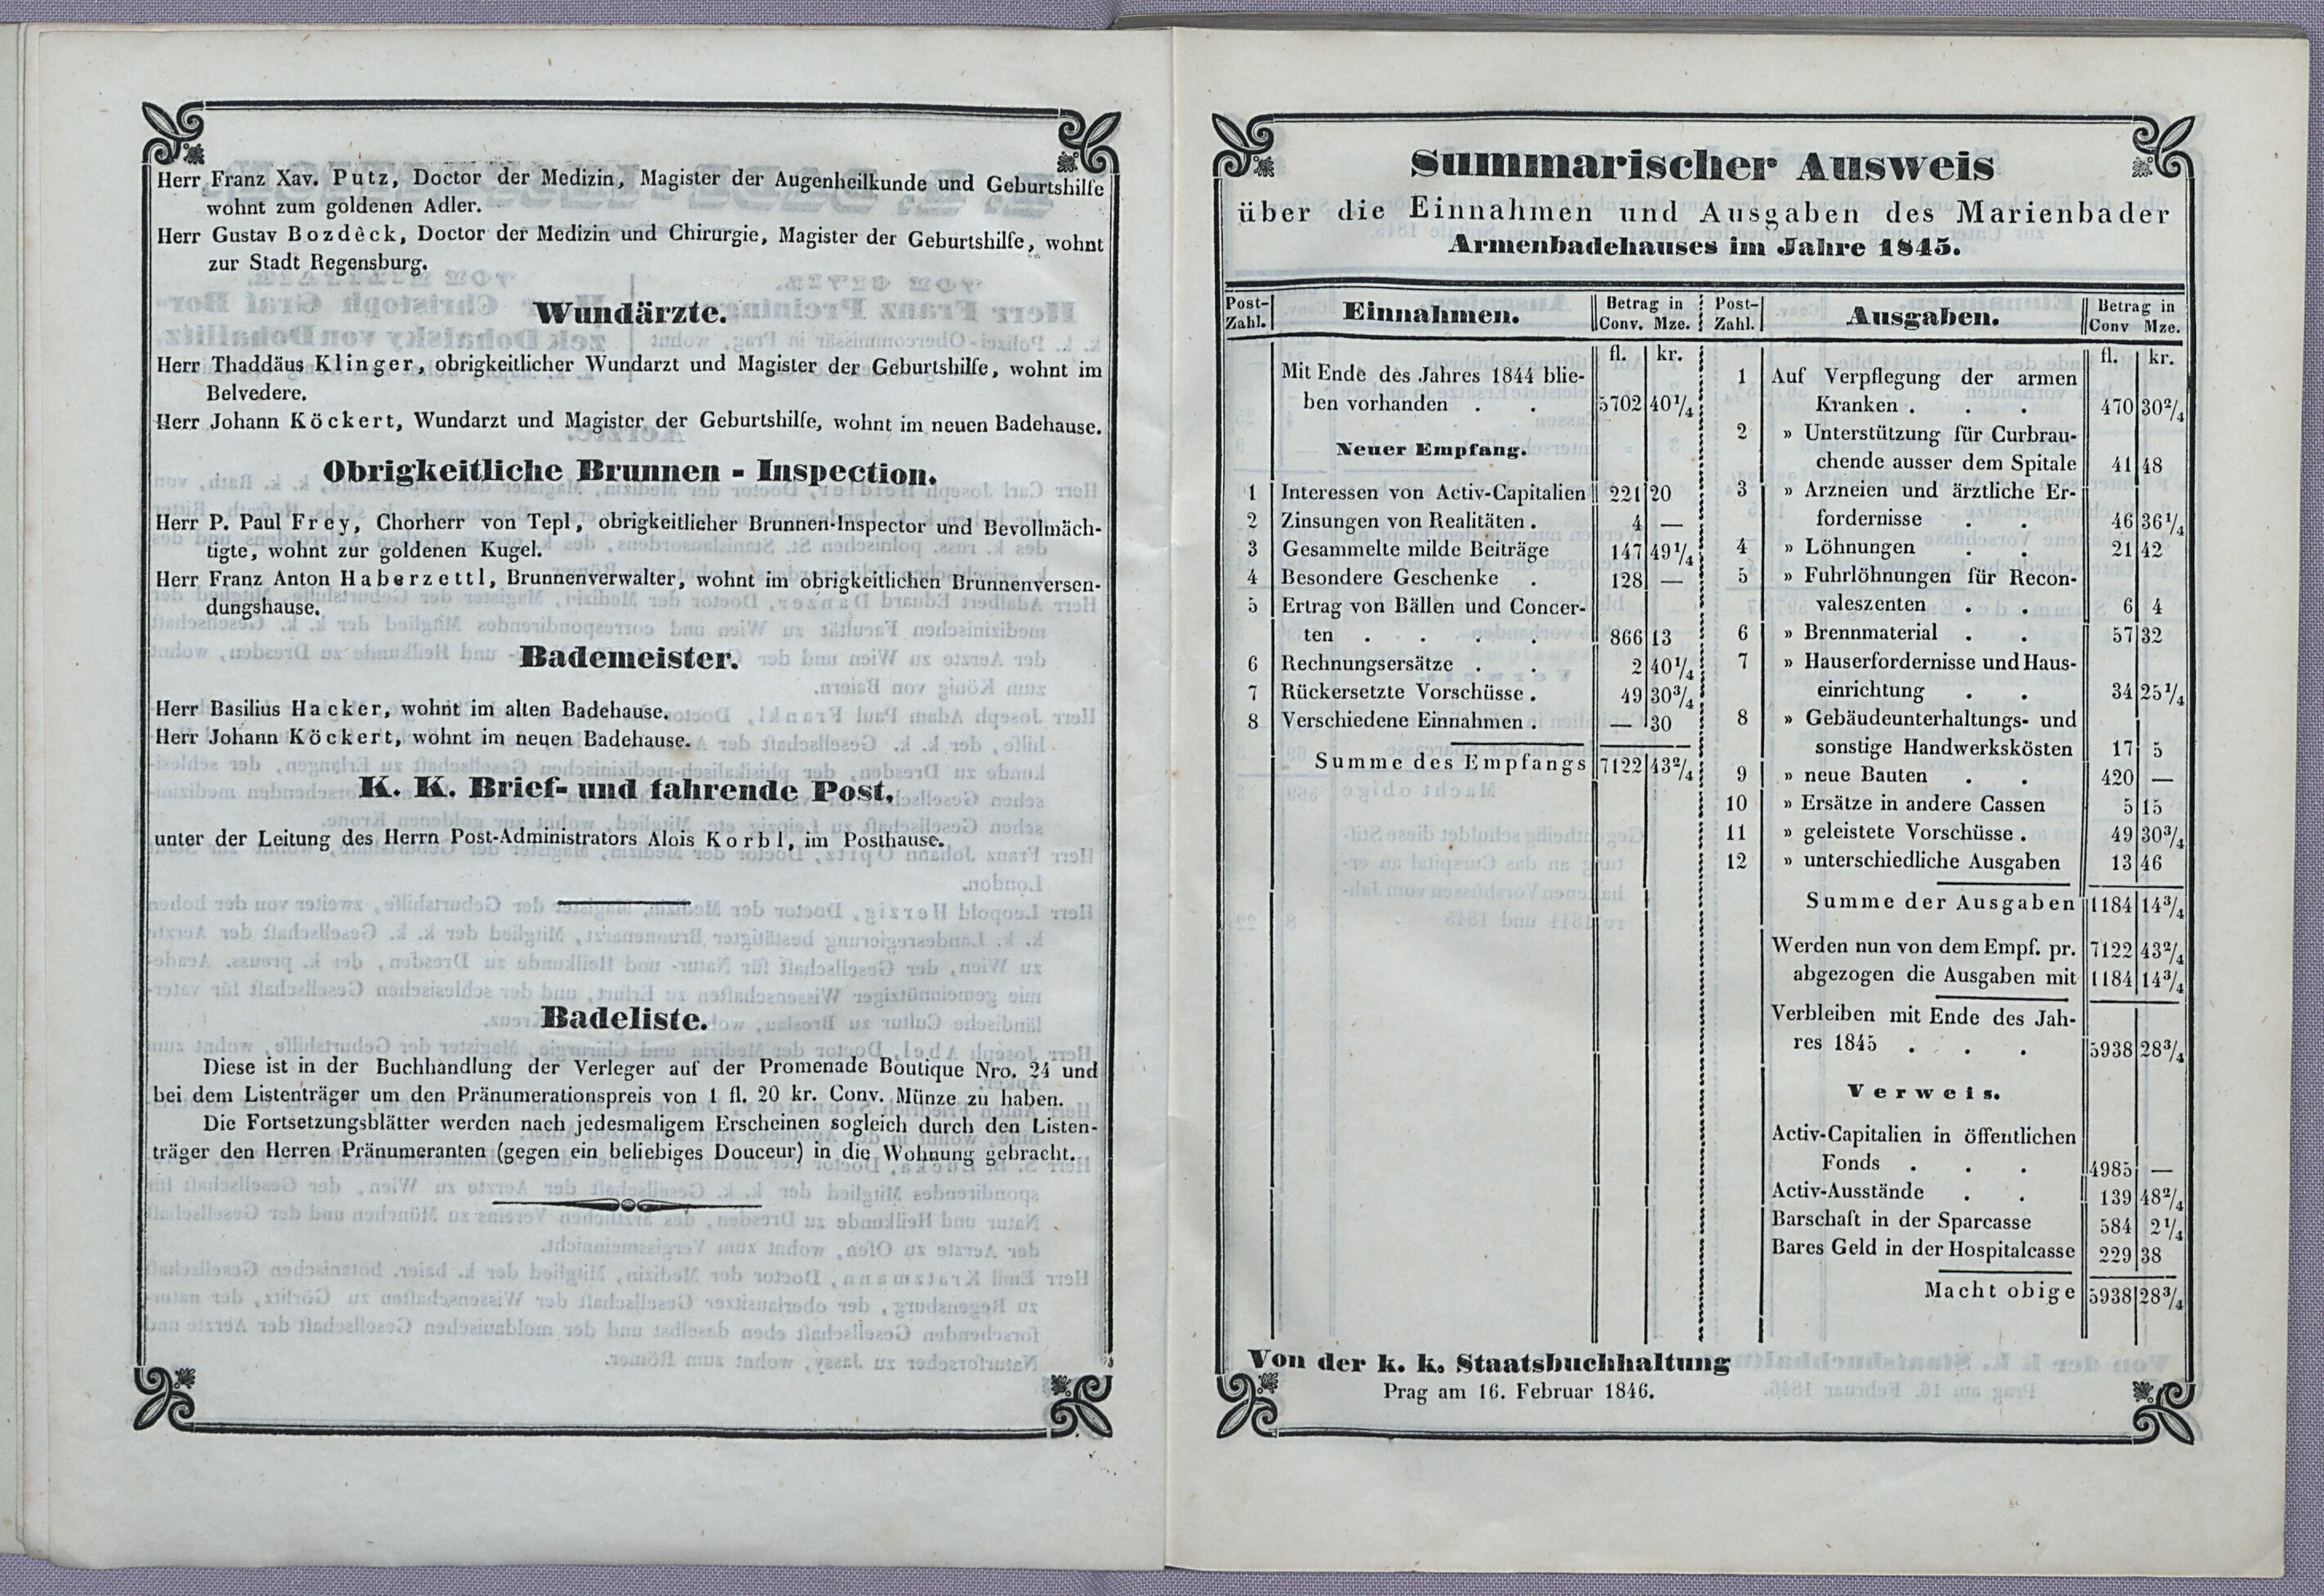 Herr Franz Xav. Putz, Doctor der Medizin, Magister der Augenheilkunde und Geburtshilfe
wohnt zum goldenen Adler.
Herr Gustav Bozdèck, Doctor der Medizin und Chirurgie, Magister der Geburtshilfe, wohnt
zur Stadt Regensburg.
Wundärzte.
Herr Thaddäus Klinger, obrigkeitlicher Wundarzt und Magister der Geburtshilfe, wohnt im
Belvedere.
Herr Johann Köckert, Wundarzt und Magister der Geburtshilfe, wohnt im neuen Badehause.
Obrigkeitliche Brunnen - Inspection.
Herr P. Paul Frey, Chorherr von Tepl, obrigkeitlicher Brunnen-Inspector und Bevollmäch-
tigte, wohnt zur goldenen Kugel.
Herr Franz Anton Haberzettl, Brunnenverwalter, wohnt im obrigkeitlichen Brunnenversen-
dungshause.
Bademeister.
Herr Basilius Hacker, wohnt im alten Badehause.
Herr Johann Köckert, wohnt im neuen Badehause.
K. K. Brief- und fahrende Post,
unter der Leitung des Herrn Post-Administrators Alois Korbl, im Posthause.
Badeliste.
Diese ist in der Buchhandlung der Verleger auf der Promenade Boutique Nro. 24 und
bei dem Listenträger um den Pränumerationspreis von 1 fl. 20 kr. Conv. Münze zu haben.
Die Fortsetzungsblätter werden nach jedesmaligem Erscheinen sogleich durch den Listen-
träger den Herren Pränumeranten (gegen ein beliebiges Douceur) in die Wohnung gebracht.
Summarischer Ausweis
über die Einnahmen und Ausgaben des Marienbader
Armenbadehauses im Jahre 1845.
Post-Zahl. Einnahmen. Betrag in Conv. Mze.
fl. kr.
Mit Ende des Jahres 1844 blie-
ben vorhanden . . 5702 40 1/4
Neuer Empfang.
1 Interessen von Activ-Capitalien 221 20
2 Zinsungen von Realitäten . 4 —
3 Gesammelte milde Beiträge 147 49 1/4
4 Besondere Geschenke . 128 —
5 Ertrag von Bällen und Concer-
ten . . . . 866 13
6 Rechnungsersätze . . 2 40 1/4
7 Rückersetzte Vorschüsse . 49 30 3/4
8 Verschiedene Einnahmen . — 30
Summe des Empfangs 7122 43 2/4
Post-Zahl. Ausgaben. Betrag in Conv Mze.
fl. kr.
1 Auf Verpflegung der armen
Kranken . . . 470 30 2/4
2 » Unterstützung für Curbrau-
chende ausser dem Spitale 41 48
3 » Arzneien und ärztliche Er-
fordernisse . . 46 36 1/4
4 » Löhnungen . . 21 42
5 » Fuhrlöhnungen für Recon-
valeszenten . . 6 4
6 » Brennmaterial . . 57 32
7 » Hauserfordernisse und Haus-
einrichtung . . 34 25 1/4
8 » Gebäudeunterhaltungs- und
sonstige Handwerkskösten 17 5
9 » neue Bauten . . 420 —
10 » Ersätze in andere Cassen 5 15
11 » geleistete Vorschüsse . 49 30 3/4
12 » unterschiedliche Ausgaben 13 46
Summe der Ausgaben 1184 14 3/4
Werden nun von dem Empf. pr. 7122 43 2/4
abgezogen die Ausgaben mit 1184 14 3/4
Verbleiben mit Ende des Jah-
res 1845 . . . 5938 28 3/4
Verweis.
Activ-Capitalien in öffentlichen
Fonds . . . 4985 —
Activ-Ausstände . . 139 48 2/4
Barschaft in der Sparcasse 584 2 1/4
Bares Geld in der Hospitalcasse 229 38
Macht obige 5938 28 3/4
Von der k. k. Staatsbuchhaltung
Prag am 16. Februar 1846.